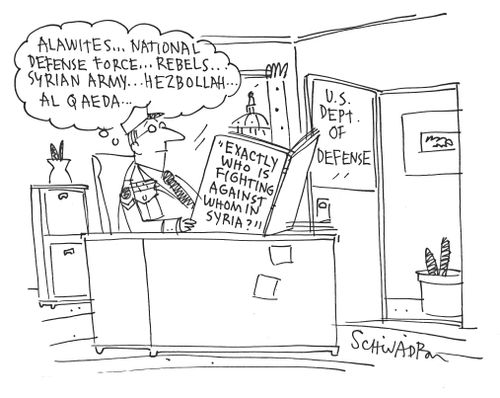 ALAWITES... NATIONAL
DEFENSE FORCE... REBELS...
SYRIAN ARMY...HEZBOLLAH...
AL QAEDA...
"EXACTLY
WHO IS
FIGHTING
AGAINST
WHOM IN
SYRIA?"
U.S.
DEPT.
OF
DEFENSE
SCHWADRON